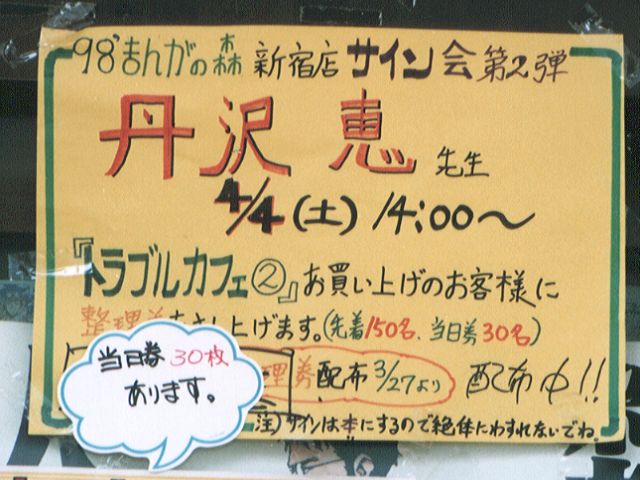 98'まんがの森 新宿店 サイン会 第2弾
丹沢 恵 先生
4/4(土) 14:00〜
『トラブルカフェ②』お買い上げのお客様に
整理券をさし上げます。(先着150名、当日券30名)
理券 配布 3/27より 配布中!!
注)サインは本にするので絶体にわすれないでね。
当日券30枚
あります。